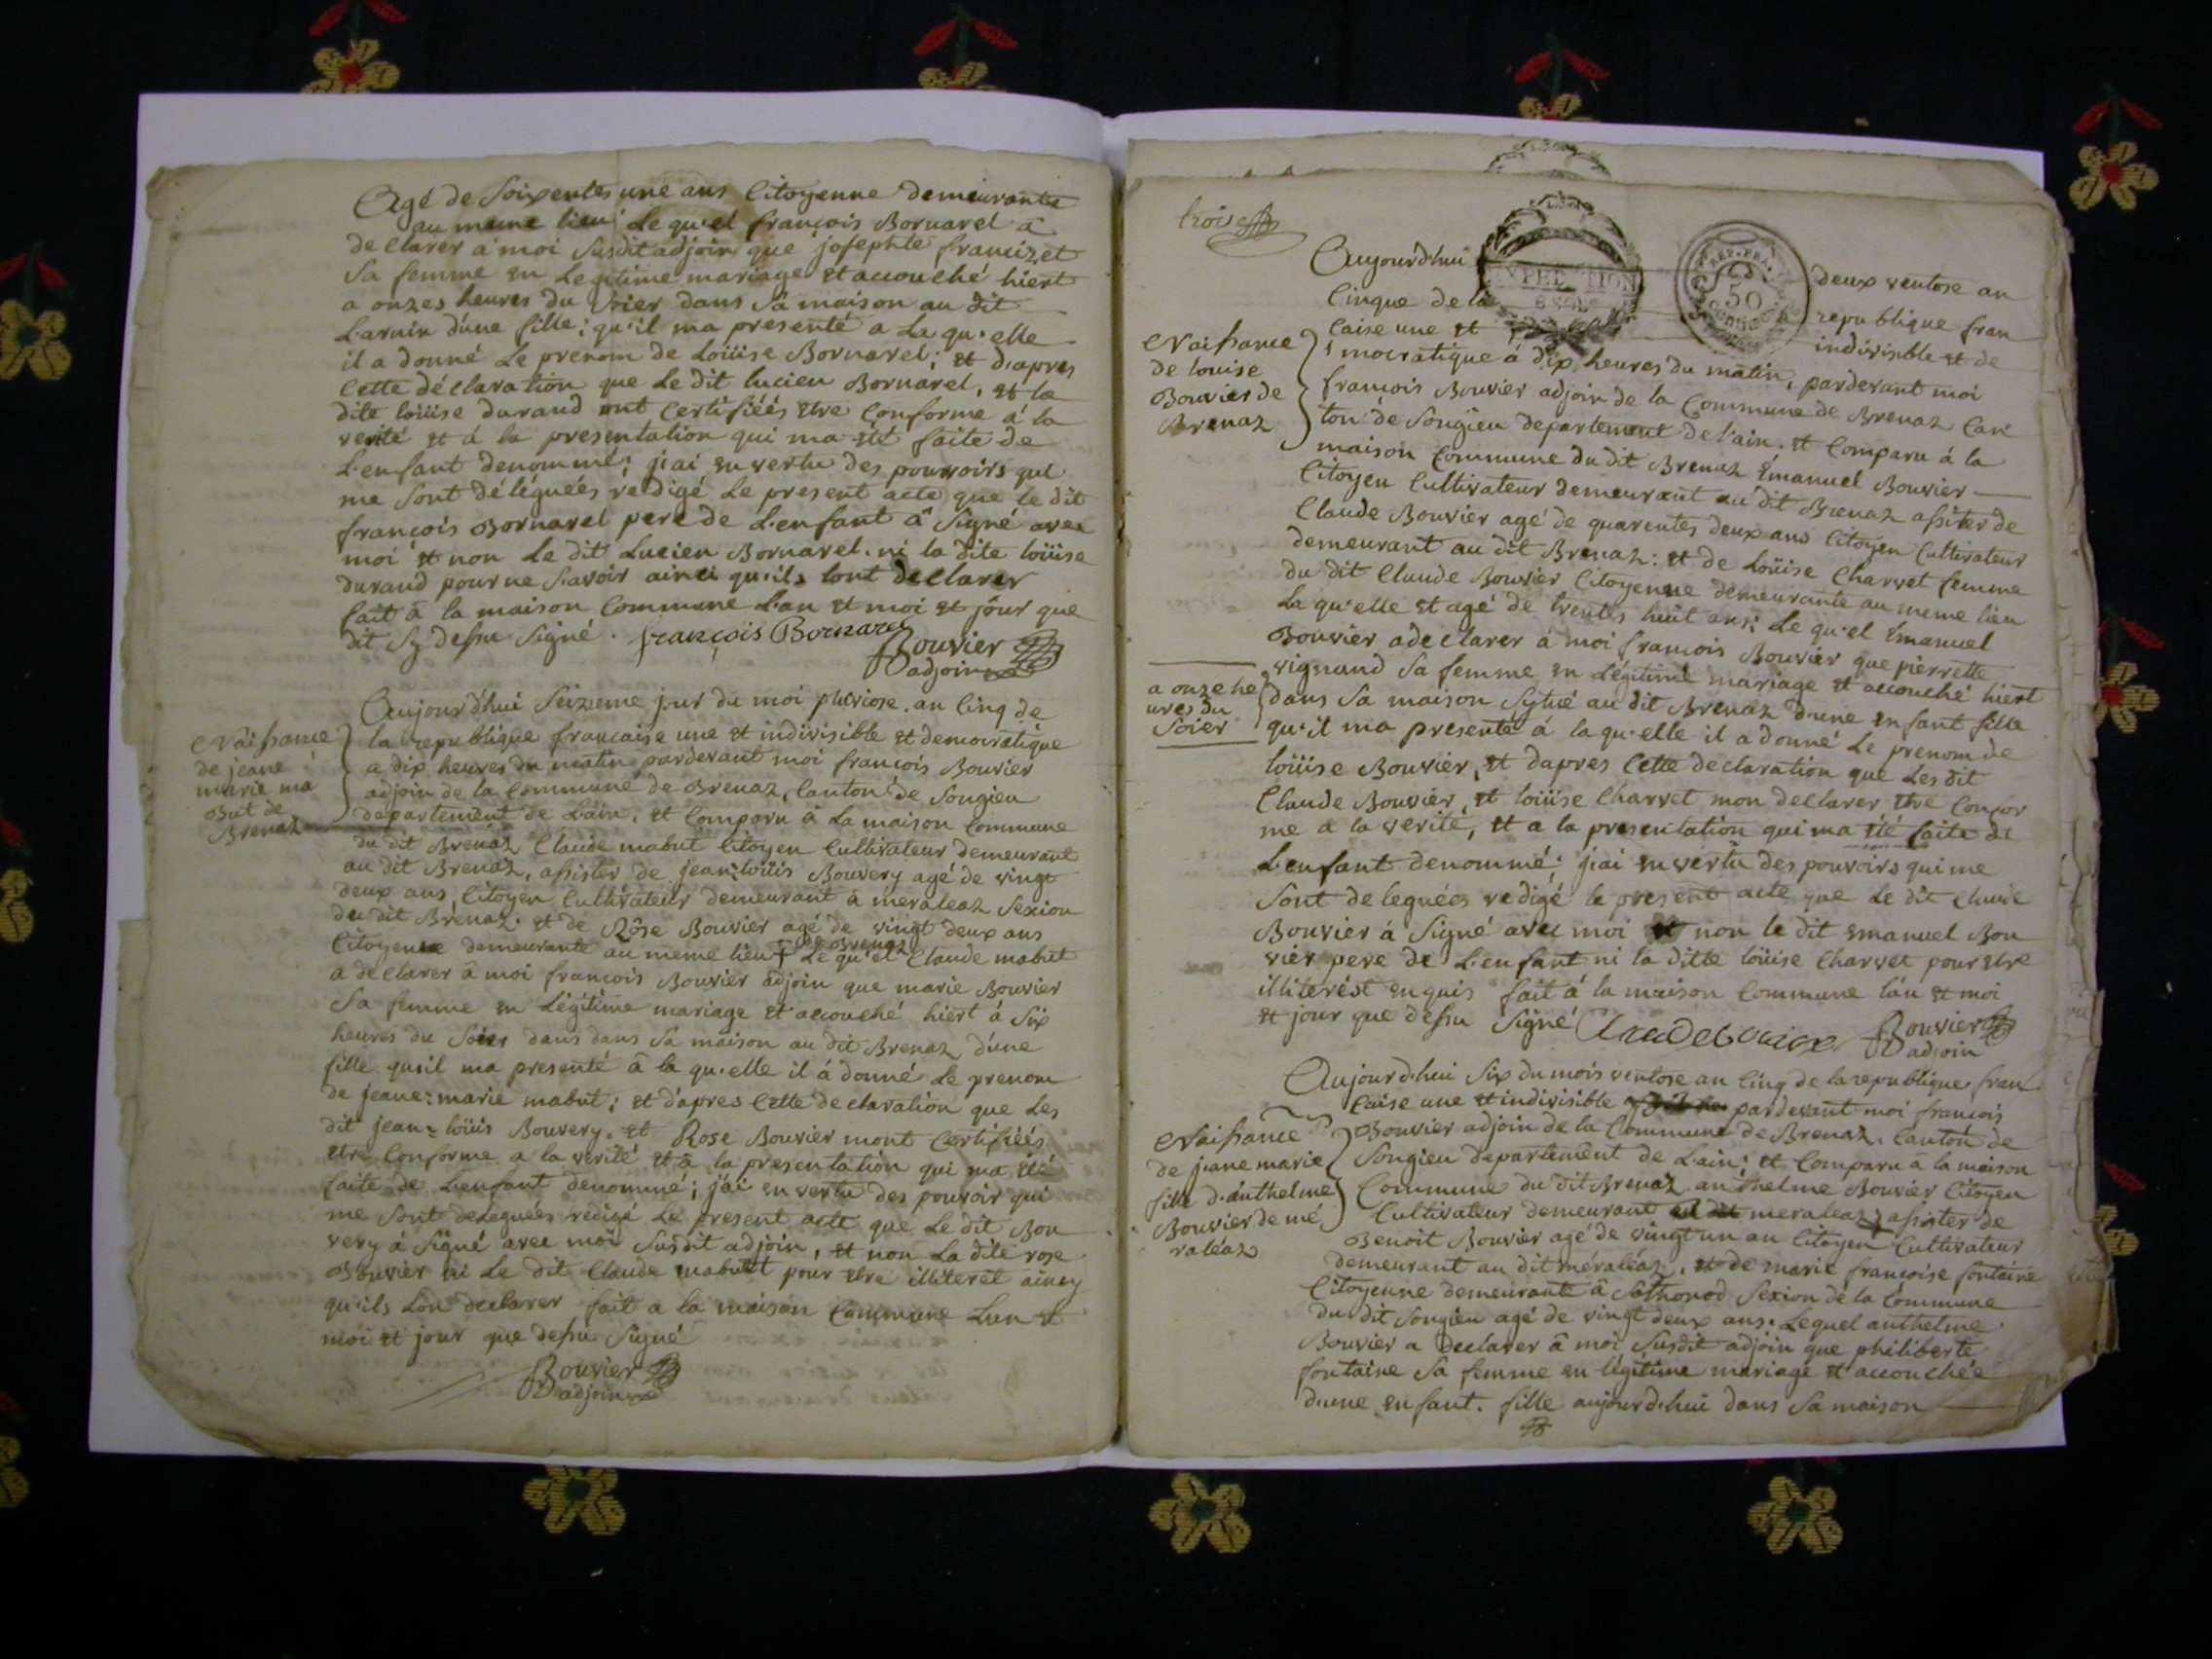 Agé de Soixentes une ans Citoyenne demeurante
au meme lieu Le qu'el françois Bornarel â
declarer a moi Susdit adjoin que josephte francizet
Sa femme en Legitime mariage et accouché hiert
a onzes heures du soier dans Sa maison au dit
Laruin d'une fille; qu'il ma presenté a La qu'elle
il a donné Le prenom de Loüise Bornarel; et d'apres
Cette déclaration que Le dit lucien Bornarel, et la
dite loüise durand ont Certifiéés etre Conforme á la
verité et á la presentation qui ma été faite de
L'enfant denommé; j'ai en vertu des pouvoirs qui
me Sont déléguéés redigé Le present acte que le dit
françois Bornarel pere de L'enfant â Signé avec
moi et non Le dit Lucien Bornarel ni la dite loüise
durand pour ne Savoir ainci qu'ils lont declarer
fait â la maison Commune L'an et moi et jour que
dit Sy dessu Signé. françois Bornarel
Bouvier
adjoin
Naissance
de jeane
marie ma
But de
Brenaz
Aujourd'hui Seizieme jour du moi pluviose an Cinq de
la republique francaise une et indivisible et democratique
a dix heures du matin pardevant moi françois Bouvier
adjoin de la Commune de Brenaz, Canton de Songieu
departement de Lain, et Comparu â La maison Commune
du dit Brenaz Claude mabut Citoyen Cultivateur demeurant
au dit Brenaz, assister de jean loüis Bouvery agé de vingt
deux ans, Citoyen Cultivateur demeurant á meraleaz Sexion
du dit Brenaz. et de Rôse Bouvier agé de vingt deux ans
Citoyenne demeurante au meme lieu de Brenaz Le qu'el Claude mabut
a declarer â moi françois Bouvier adjoin que marie Bouvier
Sa femme en Légitime mariage et accouché hiert á Six
heures du Soier dans dans Sa maison au dit Brenaz d'une
fille qu'il ma presenté â la qu'elle il â donné Le prenom
de jeane=marie mabut; et d'apres Cette declaration que Les
dit jean=loüis Bouvery. et Rose Bouvier mont Certifiéés
etre Conforme a la verité et â la presentation qui ma été
faite de L'enfant denommé; j'ai en vertu des pouvoir qui
me Sont deleguéés redigé Le present acte que Le dit Bou
very á Signé avec moi Susdit adjoin, et non La dite rose
Bouvier ni Le dit Claude mabut pour etre illiteret aincy
qu'ils Lon declarer fait a la maison Commune Lan et
moi et jour que dessu Signé
Bouvier
adjoin
trois
EXPEDITION
REP. FRA.
50
Aujourd'hui deux ventose an
Cinque de la republique fran
Caise une et indivisible et de
Naissance
de louise
Bouvier de
Brenaz
mocratique á dix heures du matin, pardevant moi
françois Bouvier adjoin de la Commune de Brenaz Can
ton de Songieu departement de l'ain. et Comparu á la
maison Commune du dit Brenaz Émanuel Bouvier
Citoyen Cultivateur demeurant au dit Brenaz assister de
Claude Bouvier agé de quarentes deux ans Citoyen Cultivateur
demeurant au dit Brenaz: et de Loüise Charvet femme
du dit Claude Bouvier Citoyenne demeurante au meme lieu
La qu'elle et agé de trentes huit ans; Le qu'el Émanuel
Bouvier a declarer á moi francois Bouvier que pierrette
vignand Sa femme en Légitime mariage et accouché hiert
a onze he
ures du
Soier
dans Sa maison Sytué au dit Brenaz d'une enfant fille
qu'il ma presenté á la qu'elle il a donné Le prenom de
loüise Bouvier, et dapres Cette declaration que Les dit
Claude Bouvier, et loüise Charvet mon declarer etre Confor
me a la verité, et a la presentation qui ma été faite de
L'enfant denommé; j'ai en vertu des pouvoirs qui me
Sont deleguéés redigé le present acte que Le dit Claude
Bouvier á Signé avec moi et non le dit emanuel Bou
vier pere de L'enfant ni la ditte loüise Charvet pour etre
illiterést enquis fait á la maison Commune lan et moi
et jour que dessu Signé Claude bouvier Bouvier
adjoin
Aujourd'hui Six du mois ventose an Cinq de la republique fran
Caise une et indivisible pardevant moi francois
Naissance
de jeane marie
fille d'anthelme
Bouvier de mé
raléaz
Bouvier adjoin de la Commune de Brenaz. Canton de
Songieu departement de L'ain; et Comparu â la maison
Commune du dit Brenaz anthelme Bouvier Citoyen
Cultivateur demeurant meraleaz assister de
Benoit Bouvier agé de vingt un an Citoyen Cultivateur
demeurant au dit méraléaz, et de marie françoise fontaine
Citoyenne demeurante â Sothonod Sexion de la Commune
du dit Songieu agé de vingt deux ans. Lequel anthelme
Bouvier a declarer â moi Susdit adjoin que philiberte
fontaine Sa femme en légitime mariage et accouchée
d'une enfant. fille aujourd'hui dans Sa maison